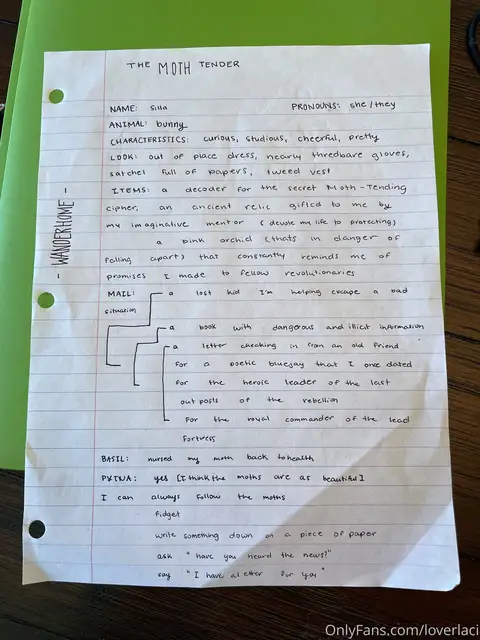 THE MOTH TENDER
NAME: silla PRONOUNS: she/they
ANIMAL: bunny
CHARACTERISTICS: curious, studious, cheerful, pretty
LOOK: out of place dress, nearly thredbare gloves,
satchel full of papers, tweed vest
ITEMS: a decoder for the secret Moth-Tending
cipher, an ancient relic gifted to me by
my imaginative mentor (devote my life to protecting)
a pink orchid (thats in danger of
falling apart) that constantly reminds me of
promises I made to fellow revolutionaries
- WANDERHOME -
MAIL: a lost kid I'm helping escape a bad
situation
a book with dangerous and illicit information
a letter checking in from an old friend
for a poetic bluejay that I once dated
for the heroic leader of the last
outposts of the rebellion
for the royal commander of the lead
fortress
BASIL: nursed my moth back to health
PXINA: yes [I think the moths are as beautiful]
I can always follow the moths
fidget
write something down on a piece of paper
ask "have you heard the news?"
say "I have a letter for you"
OnlyFans.com/loverlaci